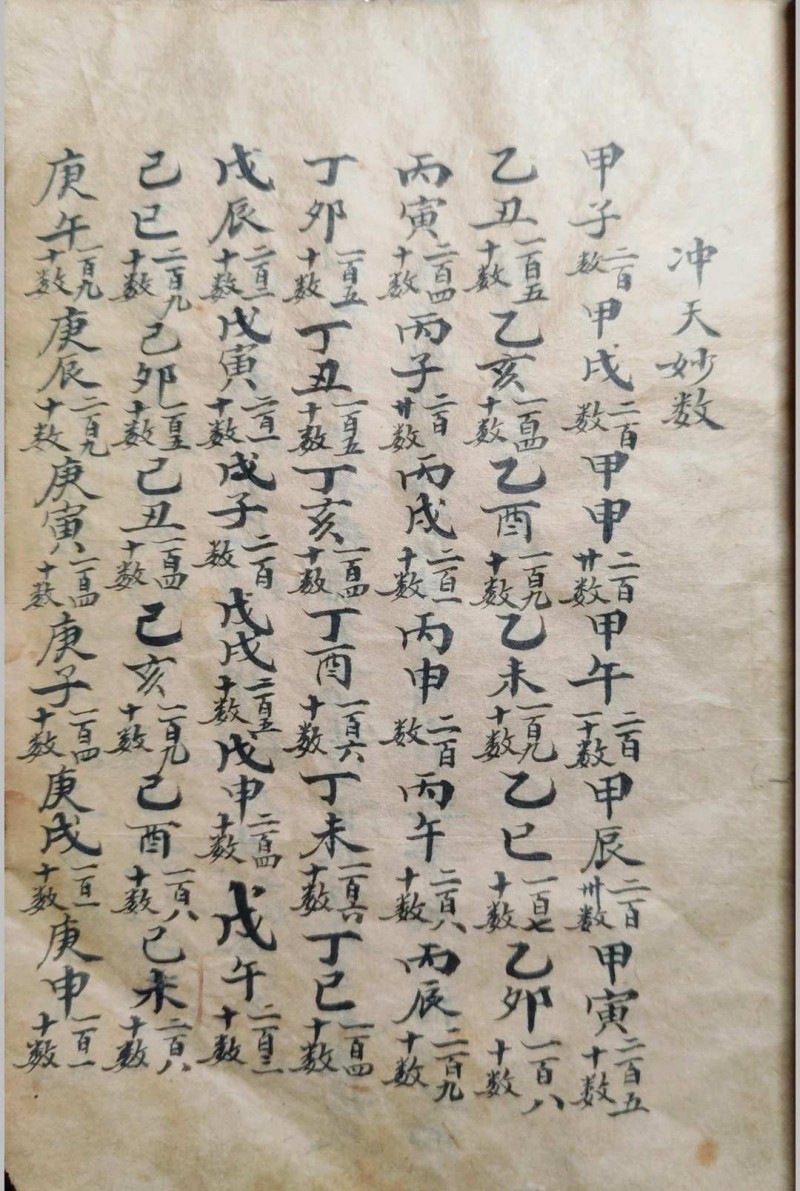 冲天妙数
甲子二百数甲戌二百数甲申二百廿数甲午二百一十数甲辰二百卅数甲寅二百五十数
乙丑一百五十数乙亥一百四十数乙酉一百九十数乙未一百九十数乙巳一百七十数乙卯一百八十数
丙寅二百四十数丙子二百廿数丙戌二百一十数丙申二百数丙午二百八十数丙辰二百九十数
丁卯一百五十数丁丑一百五十数丁亥一百四十数丁酉一百六十数丁未一百六十数丁巳一百四十数
戊辰二百一十数戊寅二百一十数戊子二百数戊戌二百五十数戊申二百四十数戊午二百三十数
己巳二百九十数己卯一百五十数己丑一百四十数己亥一百九十数己酉一百八十数己未二百八十数
庚午一百九十数庚辰二百九十数庚寅一百四十数庚子一百四十数庚戌一百一十数庚申一百一十数